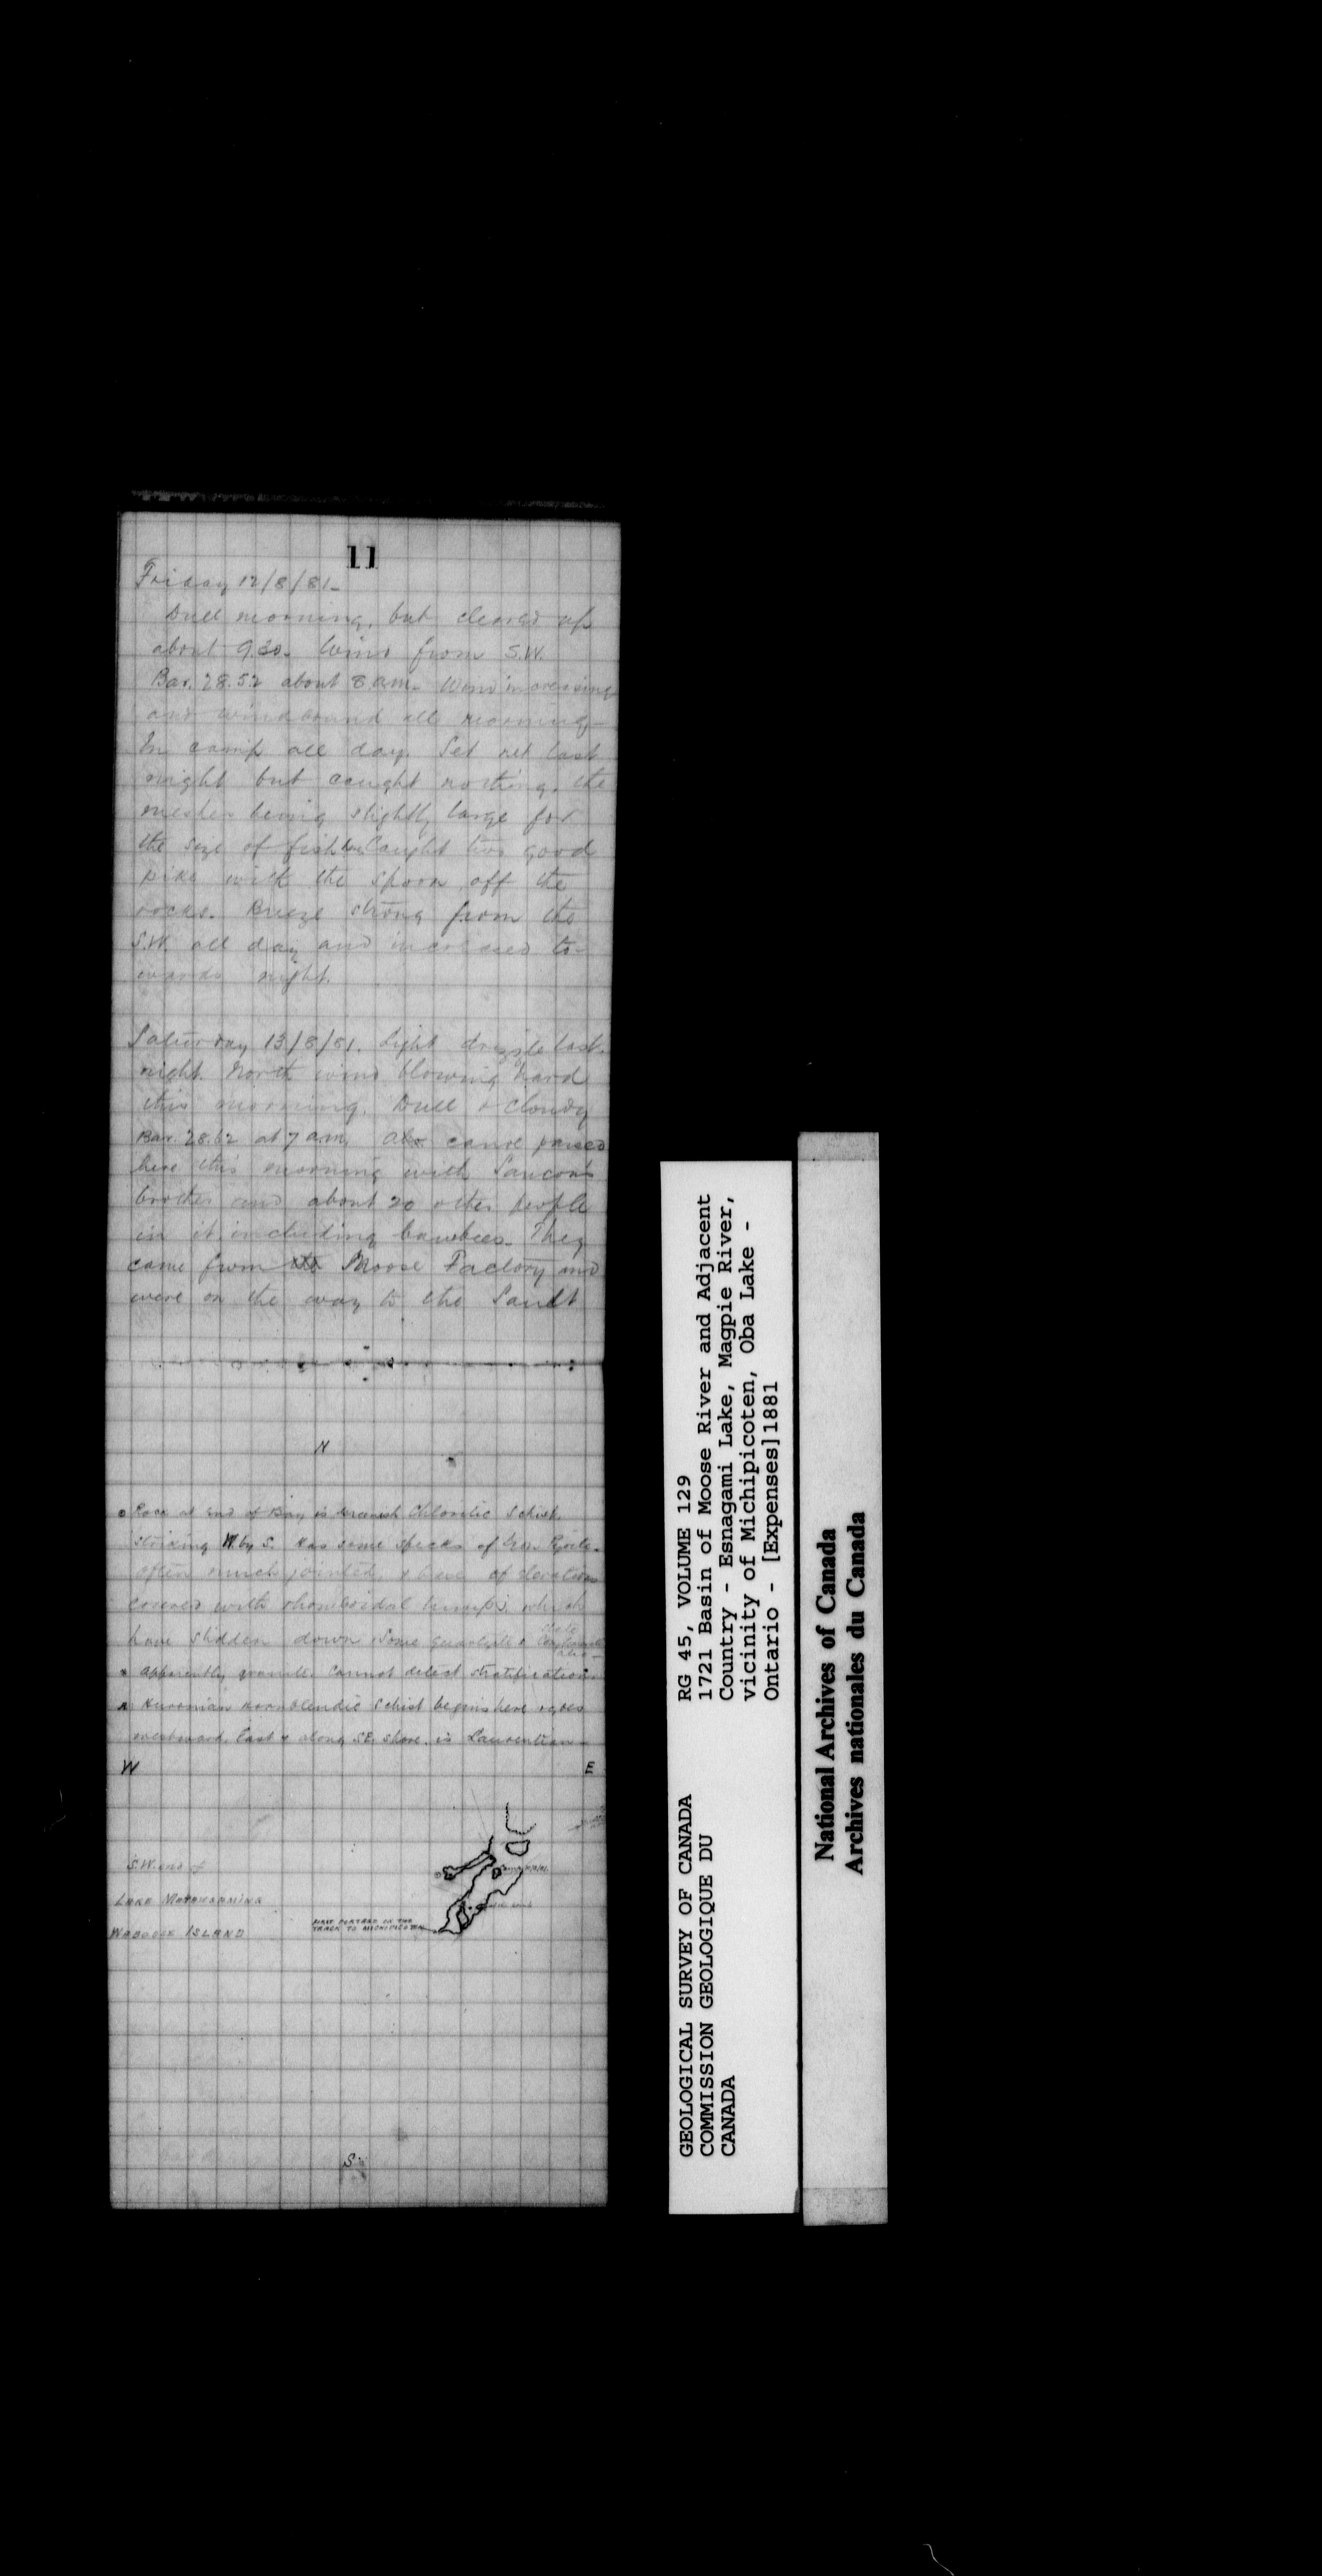 11
Friday 12/8/81-
Dull morning, but cleared up
about 9.30. Wind from S.W.
Bar. 28.52 about 8 a.m. Wind increasing
and windbound all morning-
In camp all day. Set net last
night but caught nothing, the
meshes being slightly large for
the size of fish. Caught two good
pike with the spoon off the
rocks. Breeze strong from the
S.W. all day and increased to-
wards night.
Saturday 13/8/81. Light drizzle last
night. North wind blowing hard
this morning. Dull & cloudy
Bar. 28.62 at 7 a.m. canoe passed
here this morning with
brother and about 20 other people
in it including bawbees. They
came from Moose Factory and
were on the way to the Sault
N
Rock at end of Bay is Chloritic Schist
striking W. by S. Has some specks of Iron Pyrites.
often much jointed, & base of elevations
covered with rhomboidal lumps, which
have slidden down. Some quartzite &
Apparently granite. Cannot detect stratification.
Huronian hornblendic schist begins here & goes
westward. East & along SE. shore is Laurentian-
W E
S.W. end of
LAKE
ISLAND
FIRST PORTAGE ON THE
TRACK TO MICHIPICOTEN
S
GEOLOGICAL SURVEY OF CANADA
COMMISSION GEOLOGIQUE DU
CANADA
RG 45, VOLUME 129
1721 Basin of Moose River and Adjacent
Country - Esnagami Lake, Magpie River,
vicinity of Michipicoten, Oba Lake -
Ontario - [Expenses]1881
National Archives of Canada
Archives nationales du Canada